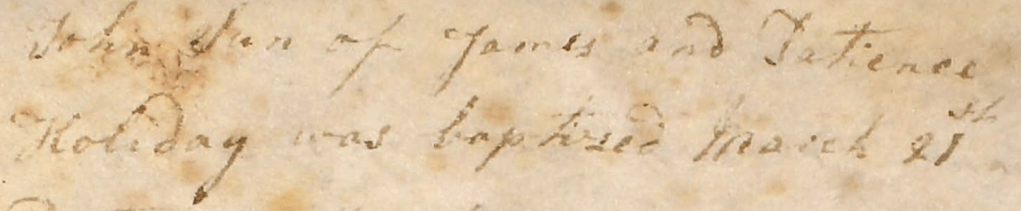 John Sun of James and Patience
Holiday was baptized March 21st